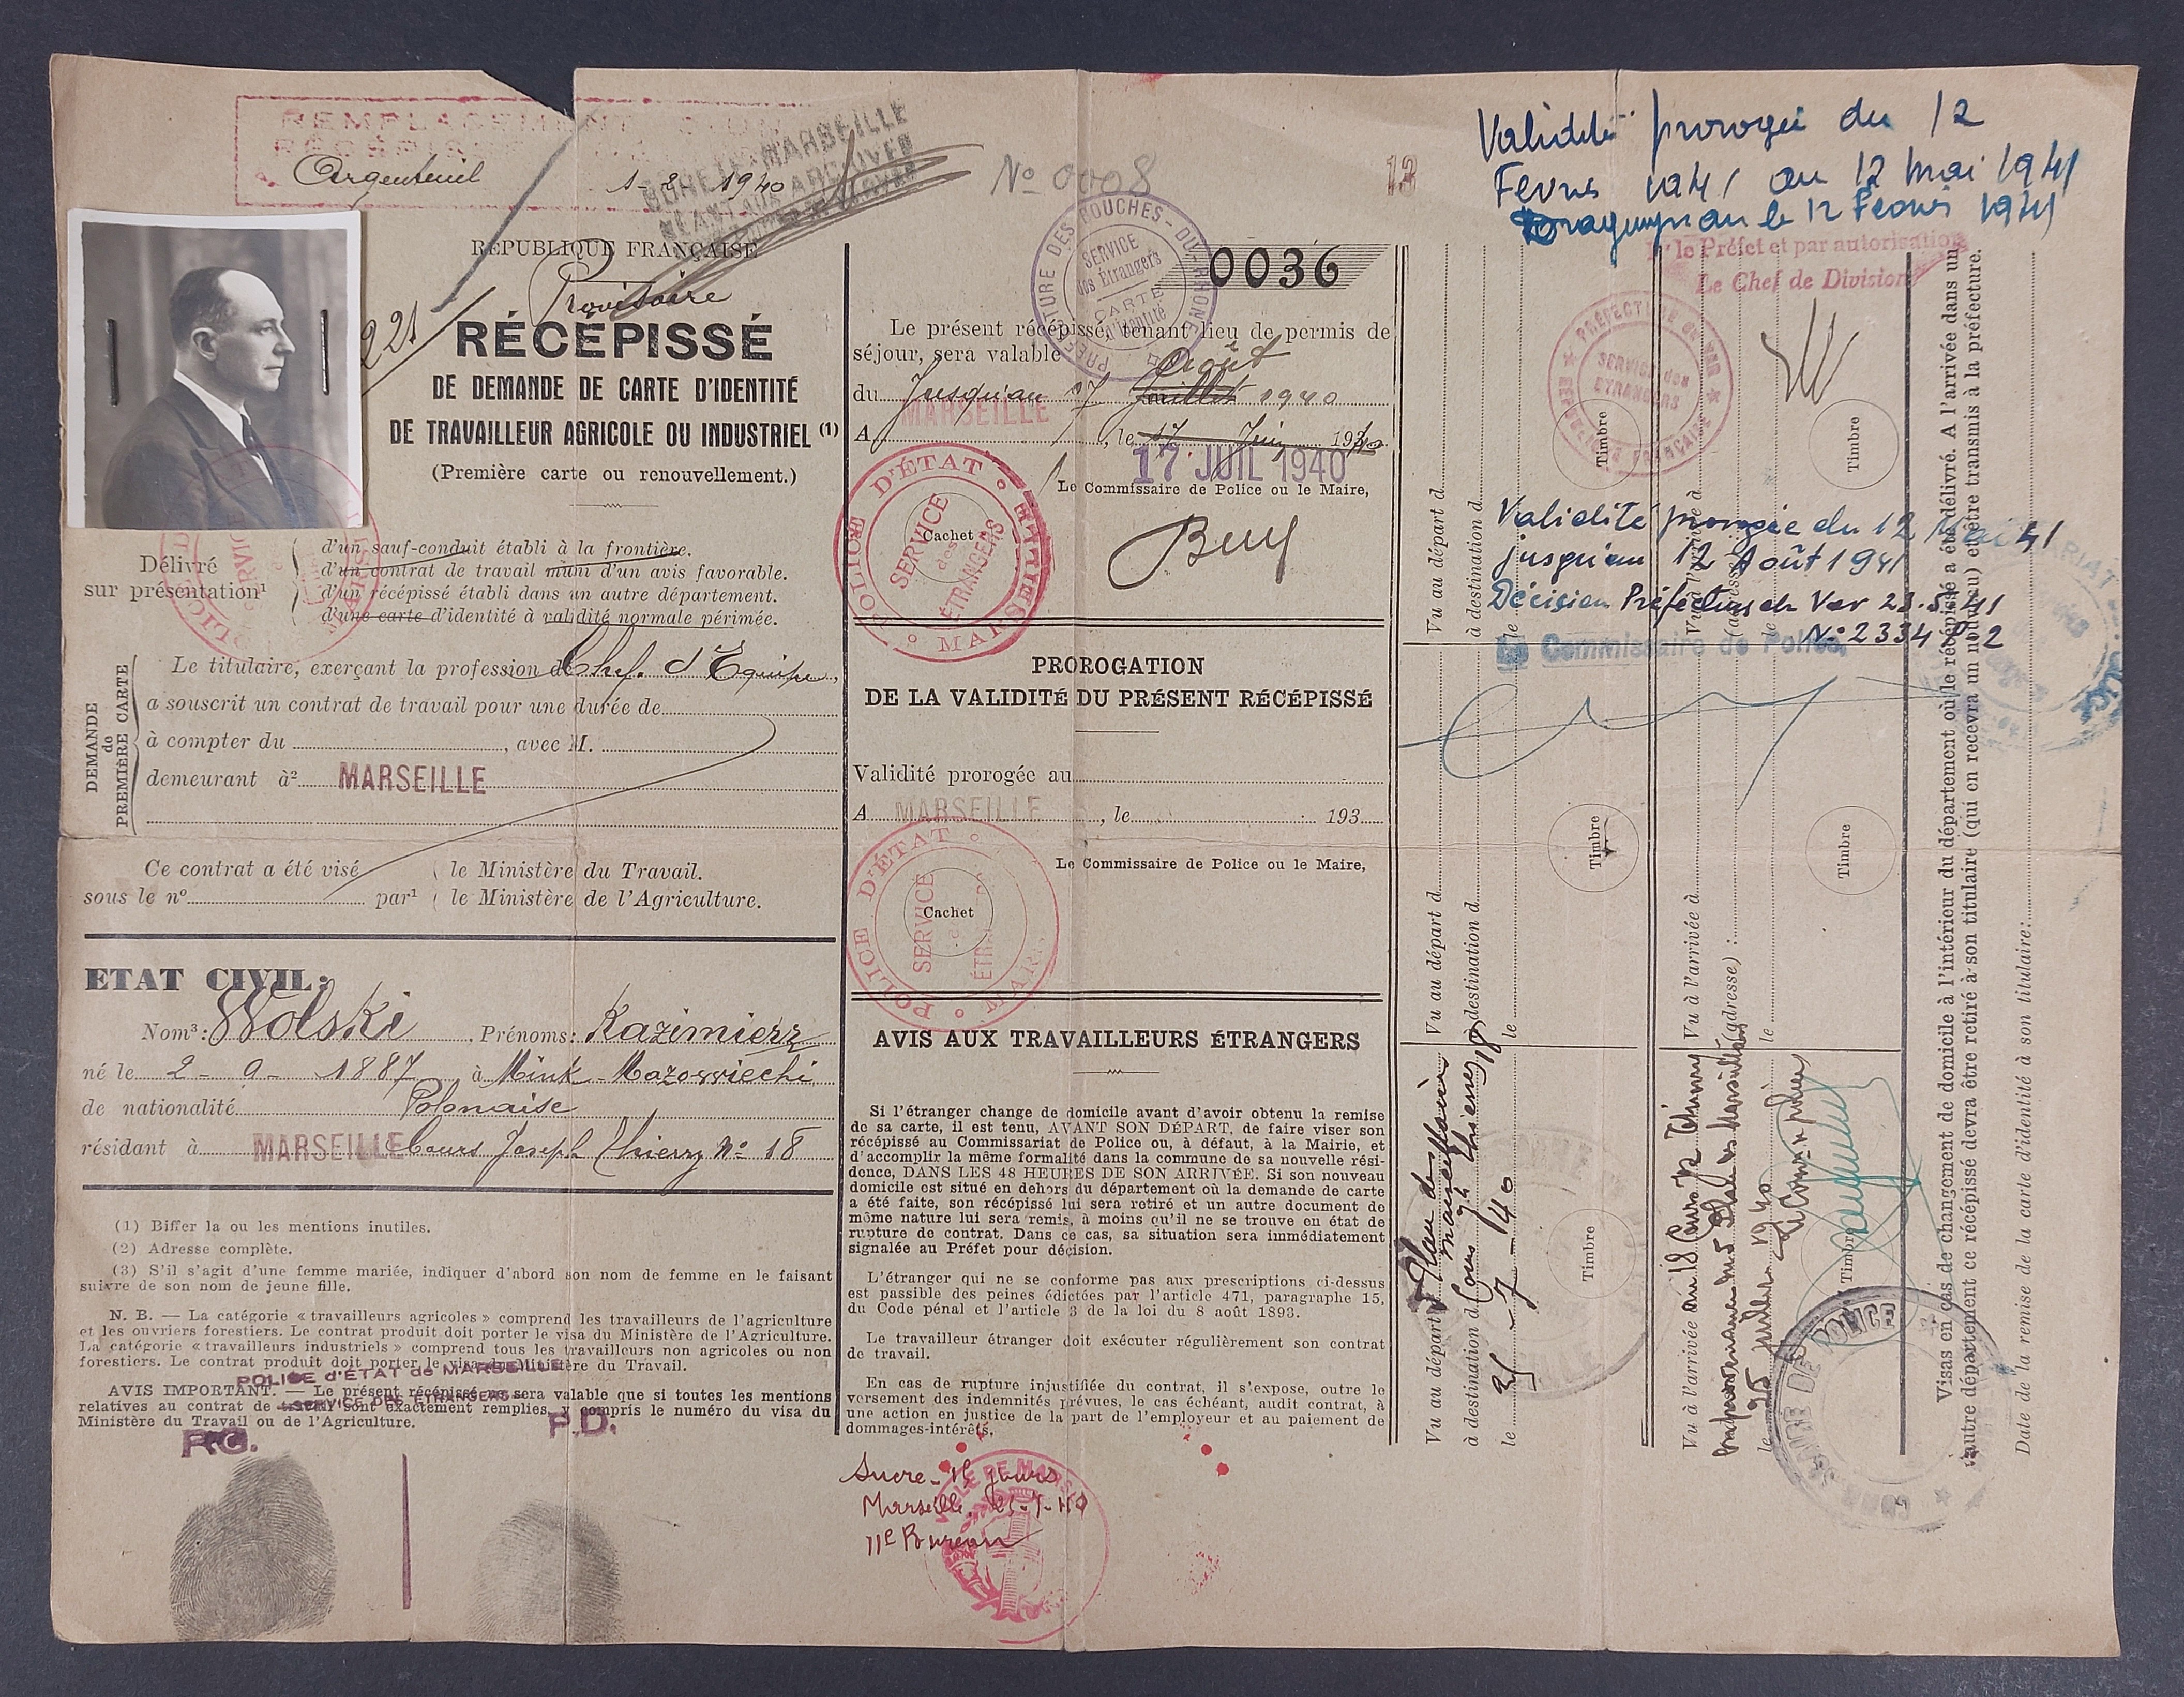 REMPLACEMENT
RÉCÉPISSÉ
Argenteuil 1-2 1940
SURETE MARSEILLE
NEANT AUX ARCHIVES
RÉPUBLIQUE FRANÇAISE
221
Provisoire
RÉCÉPISSÉ
DE DEMANDE DE CARTE D'IDENTITÉ
DE TRAVAILLEUR AGRICOLE OU INDUSTRIEL (1)
(Première carte ou renouvellement.)
Délivré
sur présentation¹
d'un sauf-conduit établi à la frontière.
d'un contrat de travail muni d'un avis favorable.
d'un récépissé établi dans un autre département.
d'une carte d'identité à validité normale périmée.
DEMANDE
de
PREMIÈRE CARTE
Le titulaire, exerçant la profession de Chef. d'Equipe,
a souscrit un contrat de travail pour une durée de
à compter du , avec M.
demeurant à² MARSEILLE
Ce contrat a été visé
sous le nº par¹
le Ministère du Travail.
le Ministère de l'Agriculture.
ETAT CIVIL:
Nom³: Wolski Prénoms: Kazimierz
né le 2-9-1887 à Mink-Mazowiechi
de nationalité Polonaise
résidant à MARSEILLE Cours Joseph Thierry Nº 18
(1) Biffer la ou les mentions inutiles.
(2) Adresse complète.
(3) S'il s'agit d'une femme mariée, indiquer d'abord son nom de femme en le faisant
suivre de son nom de jeune fille.
N. B. — La catégorie « travailleurs agricoles » comprend les travailleurs de l'agriculture
et les ouvriers forestiers. Le contrat produit doit porter le visa du Ministère de l'Agriculture.
La catégorie « travailleurs industriels » comprend tous les travailleurs non agricoles ou non
forestiers. Le contrat produit doit porter le visa du Ministère du Travail.
POLICE d'ÉTAT de MARSEILLE
SERVICE DES ÉTRANGERS
AVIS IMPORTANT. — Le présent récépissé ne sera valable que si toutes les mentions
relatives au contrat de travail sont exactement remplies, y compris le numéro du visa du
Ministère du Travail ou de l'Agriculture.
P.G. P.D.
Nº 0008
PRÉFECTURE DES BOUCHES-DU-RHONE
SERVICE
des Étrangers
CARTE
d'Identité
0036
Le présent récépissé, tenant lieu de permis de
séjour, sera valable
Août
du Jusqu'au 17 Juillet 1940
MARSEILLE
A , le 17 Juin 1940
17 JUIL 1940
Le Commissaire de Police ou le Maire,
POLICE D'ÉTAT MARSEILLE
SERVICE
des
ÉTRANGERS
Cachet
PROROGATION
DE LA VALIDITÉ DU PRÉSENT RÉCÉPISSÉ
Validité prorogée au
A MARSEILLE , le 193
Le Commissaire de Police ou le Maire,
POLICE D'ÉTAT
SERVICE
Cachet
AVIS AUX TRAVAILLEURS ÉTRANGERS
Si l'étranger change de domicile avant d'avoir obtenu la remise
de sa carte, il est tenu, AVANT SON DÉPART, de faire viser son
récépissé au Commissariat de Police ou, à défaut, à la Mairie, et
d'accomplir la même formalité dans la commune de sa nouvelle rési-
dence, DANS LES 48 HEURES DE SON ARRIVÉE. Si son nouveau
domicile est situé en dehors du département où la demande de carte
a été faite, son récépissé lui sera retiré et un autre document de
même nature lui sera remis, à moins qu'il ne se trouve en état de
rupture de contrat. Dans ce cas, sa situation sera immédiatement
signalée au Préfet pour décision.
L'étranger qui ne se conforme pas aux prescriptions ci-dessus
est passible des peines édictées par l'article 471, paragraphe 15,
du Code pénal et l'article 3 de la loi du 8 août 1893.
Le travailleur étranger doit exécuter régulièrement son contrat
de travail.
En cas de rupture injustifiée du contrat, il s'expose, outre le
versement des indemnités prévues, le cas échéant, audit contrat, à
une action en justice de la part de l'employeur et au paiement de
dommages-intérêts.
Sucre - 15 jours
Marseille
11e Bureau
VILLE DE MARSEILLE
13
Validité prorogée du 12
Fevrier 1941 au 12 mai 1941
Draguignan le 12 Fevrier 1941
Pr le Préfet et par autorisation
Le Chef de Division
PRÉFECTURE du VAR
SERVICE des
ETRANGERS
RÉPUBLIQUE FRANÇAISE
Validité prorogée du 12 Mai 41
jusqu'au 12 Août 1941
Décision Préfecture du Var 23.5.41
Nº 2334
Commissaire de Police,
Vu au départ d
à destination d
le
Timbre
Vu à l'arrivée à
(adresse) :
le
Timbre
Vu au départ d
à destination d
le
Timbre
Vu à l'arrivée à
(adresse) :
le
Timbre
Vu au départ
à destination d Cours Jh Thierry 18
le 25-7-40
Timbre
Vu à l'arrivée au 18 Cours Jh Thierry
le 25 juillet 1940
Timbre
POLICE
Visas en cas de changement de domicile à l'intérieur du département où le récépissé a été délivré. A l'arrivée dans un
autre département ce récépissé devra être retiré à son titulaire (qui en recevra un nouveau) et être transmis à la préfecture.
Date de la remise de la carte d'identité à son titulaire: